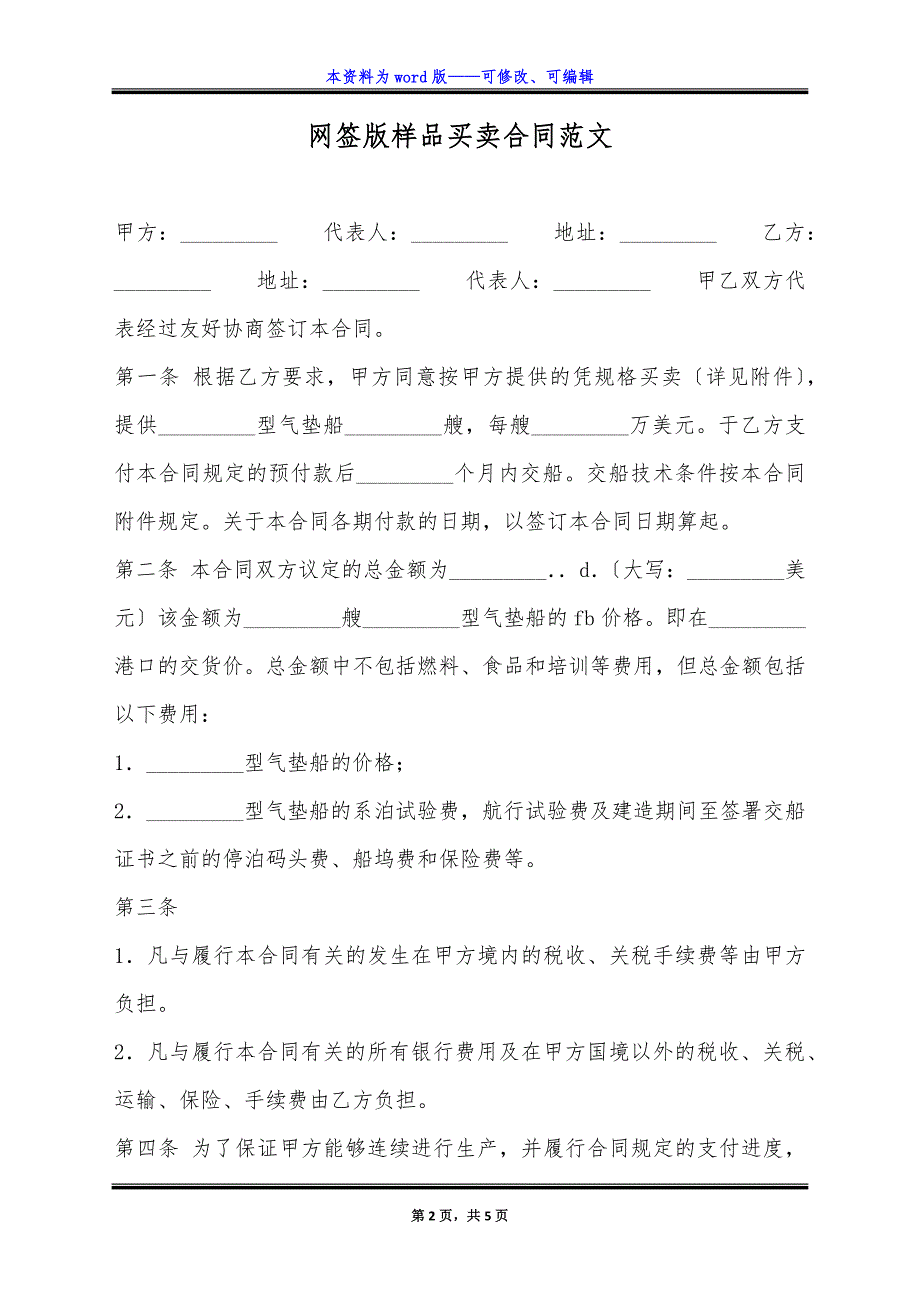 本资料为 word 版——可修改、可编辑
网签版样品买卖合同范文
甲方：_________　　代表人：_________　　地址：_________　　乙方：
_________　　地址：_________　　代表人：_________　　甲乙双方代
表经过友好协商签订本合同。
第一条 根据乙方要求，甲方同意按甲方提供的凭规格买卖〔详见附件〕，
提供_________型气垫船_________艘，每艘_________万美元。于乙方支
付本合同规定的预付款后_________个月内交船。交船技术条件按本合同
附件规定。关于本合同各期付款的日期，以签订本合同日期算起。
第二条 本合同双方议定的总金额为_________．．d．〔大写：_________美
元〕该金额为_________艘_________型气垫船的 fb 价格。即在_________
港口的交货价。总金额中不包括燃料、食品和培训等费用，但总金额包括
以下费用：
1．_________型气垫船的价格；
2．_________型气垫船的系泊试验费，航行试验费及建造期间至签署交船
证书之前的停泊码头费、船坞费和保险费等。
第三条
1．凡与履行本合同有关的发生在甲方境内的税收、关税手续费等由甲方
负担。
2．凡与履行本合同有关的所有银行费用及在甲方国境以外的税收、关税、
运输、保险、手续费由乙方负担。
第四条 为了保证甲方能够连续进行生产，并履行合同规定的支付进度，
第 2 页，共 5 页